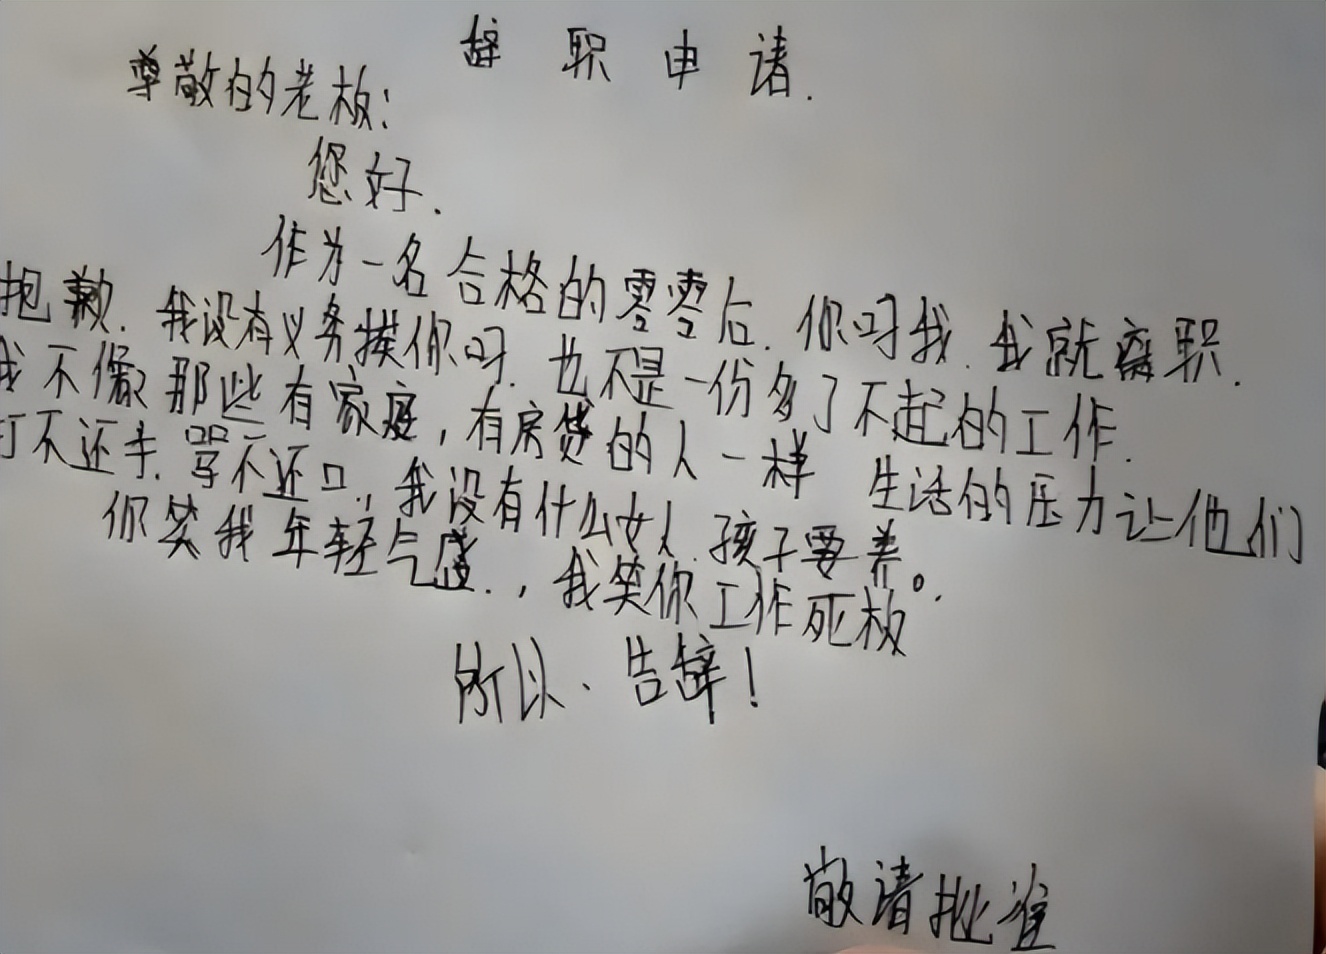 辞职申请.
尊敬的老板:
您好.
作为一名合格的零零后.你叼我.我就离职.
抱歉.我没有义务揍你叼.也不是一份多了不起的工作.
我不像那些有家庭,有房贷的人一样 生活的压力让他们
打不还手.骂不还口,我没有什么女人.孩子要养。
你笑我年轻气盛.,我笑你工作死板.
所以.告辞!
敬请批准